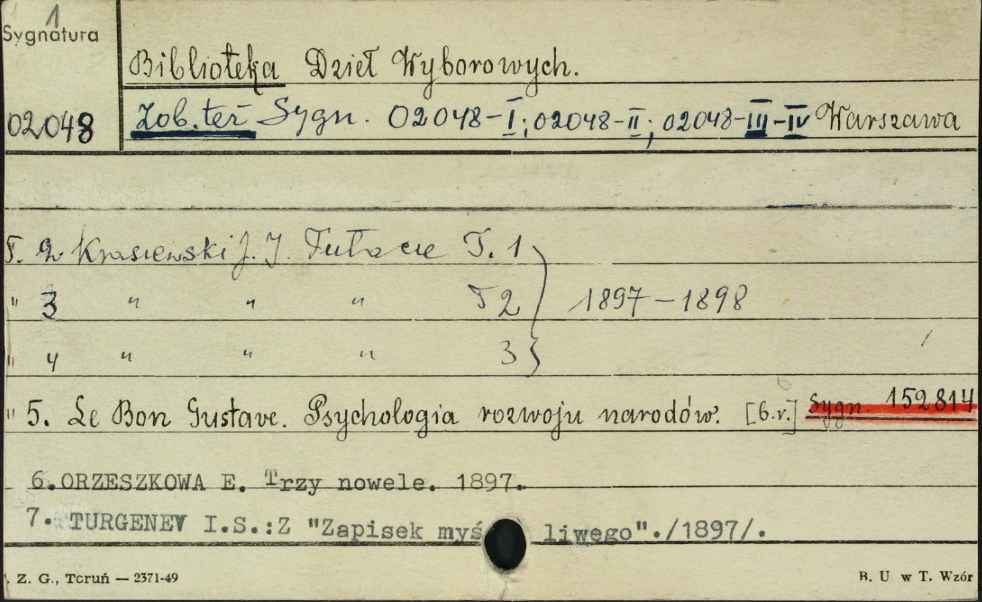 1
Sygnatura
Biblioteka Dzieł Wyborowych.
02048 Zob. też Sygn. 02048-I; 02048-II; 02048-III-IV Warszawa
T. 2 Kraszewski J. I. Tułacze T. 1
" 3 " " " T 2 1897-1898
" 4 " " " 3
" 5. Le Bon Gustave. Psychologia rozwoju narodów. [b.r.] Sygn 152814
6. ORZESZKOWA E. Trzy nowele. 1897.
7. TURGENEV I.S.:Z "Zapisek myś liwego"./1897/.
Z. G., Toruń — 2371-49 B. U w T. Wzór